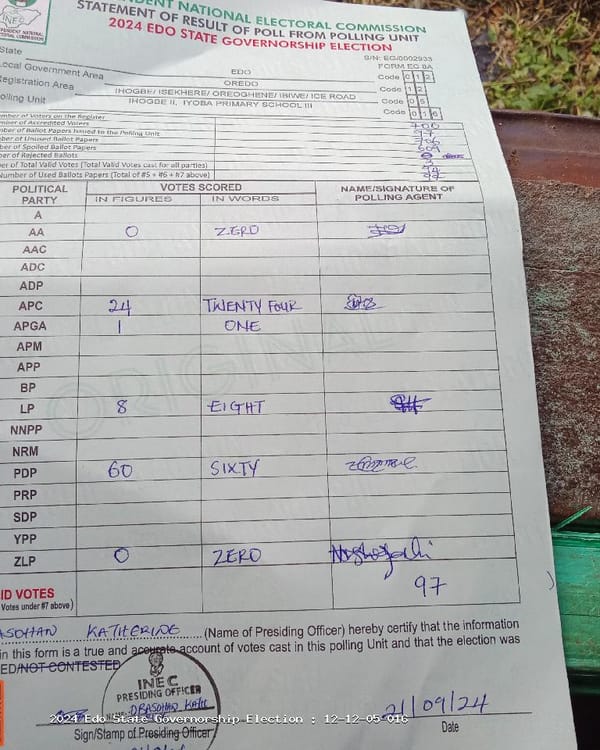 INEC
DENT NATIONAL ELECTORAL COMMISSION
STATEMENT OF RESULT OF POLL FROM POLLING UNIT
2024 EDO STATE GOVERNORSHIP ELECTION
S/N: EG/0002933
FORM EC 8A
State EDO Code 0 1 2
Local Government Area OREDO Code 1 2
Registration Area IHOGBE/ ISEKHERE/ OREOGHENE/ IBIWE/ ICE ROAD Code 0 5
Polling Unit IHOGBE II, IYOBA PRIMARY SCHOOL III Code 0 1 6
mber of Voters on the Register
mber of Accredited Voters
ber of Ballot Papers Issued to the Polling Unit
ber of Unused Ballot Papers
ber of Spoiled Ballot Papers
er of Rejected Ballots
er of Total Valid Votes (Total Valid Votes cast for all parties)
Number of Used Ballots Papers (Total of #5 + #6 + #7 above)
POLITICAL PARTY VOTES SCORED NAME/SIGNATURE OF POLLING AGENT
IN FIGURES IN WORDS
A
AA 0 ZERO
AAC
ADC
ADP
APC 24 TWENTY FOUR
APGA 1 ONE
APM
APP
BP
LP 8 EIGHT
NNPP
NRM
PDP 60 SIXTY
PRP
SDP
YPP
ZLP 0 ZERO
ID VOTES 97
Votes under #7 above)
KATHERINE (Name of Presiding Officer) hereby certify that the information
in this form is a true and accurate account of votes cast in this polling Unit and that the election was
ED/NOT CONTESTED
INEC
PRESIDING OFFICER
21/09/24
2024 Edo State Governorship Election : 12-12-05-016
Sign/Stamp of Presiding Officer Date
ORIGINAL